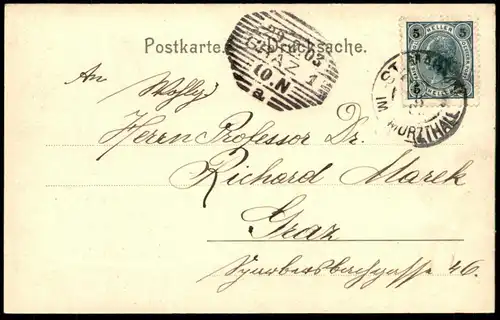 Postkarte. Drucksache.
03
GRAZ 1
10.N
a
5 HELLER 5
IM MÜRZTHALE
An Wollg.
Herrn Professor Dr.
Richard Marek
Graz
46.